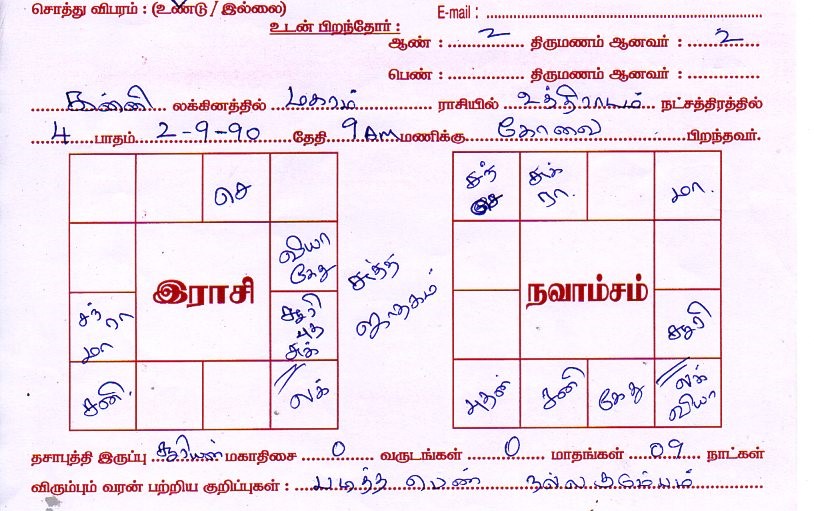 சொத்து விபரம் : (உண்டு / இல்லை) E-mail :
உடன் பிறந்தோர் :
ஆண் : 2 திருமணம் ஆனவர் : 2
பெண் : திருமணம் ஆனவர் :
கன்னி லக்கினத்தில் மகரம் ராசியில் உத்திராடம் நட்சத்திரத்தில்
4 பாதம் 2-9-90 தேதி 9 AM மணிக்கு கோவை பிறந்தவர்.
செ
வியா
கேது
இராசி
சுத்த
ஜாதகம்
சந் ரா
மா
சூரி
புத
சுக்
சனி
லக்
சந்
செ
சுக்
ரா.
மா.
நவாம்சம்
சூரி
புதன்
சனி
கேது
லக்
வியா
தசாபுத்தி இருப்பு சூரியன் மகாதிசை 0 வருடங்கள் 0 மாதங்கள் 09 நாட்கள்
விரும்பும் வரன் பற்றிய குறிப்புகள் : படித்த பெண் நல்ல குடும்பம்